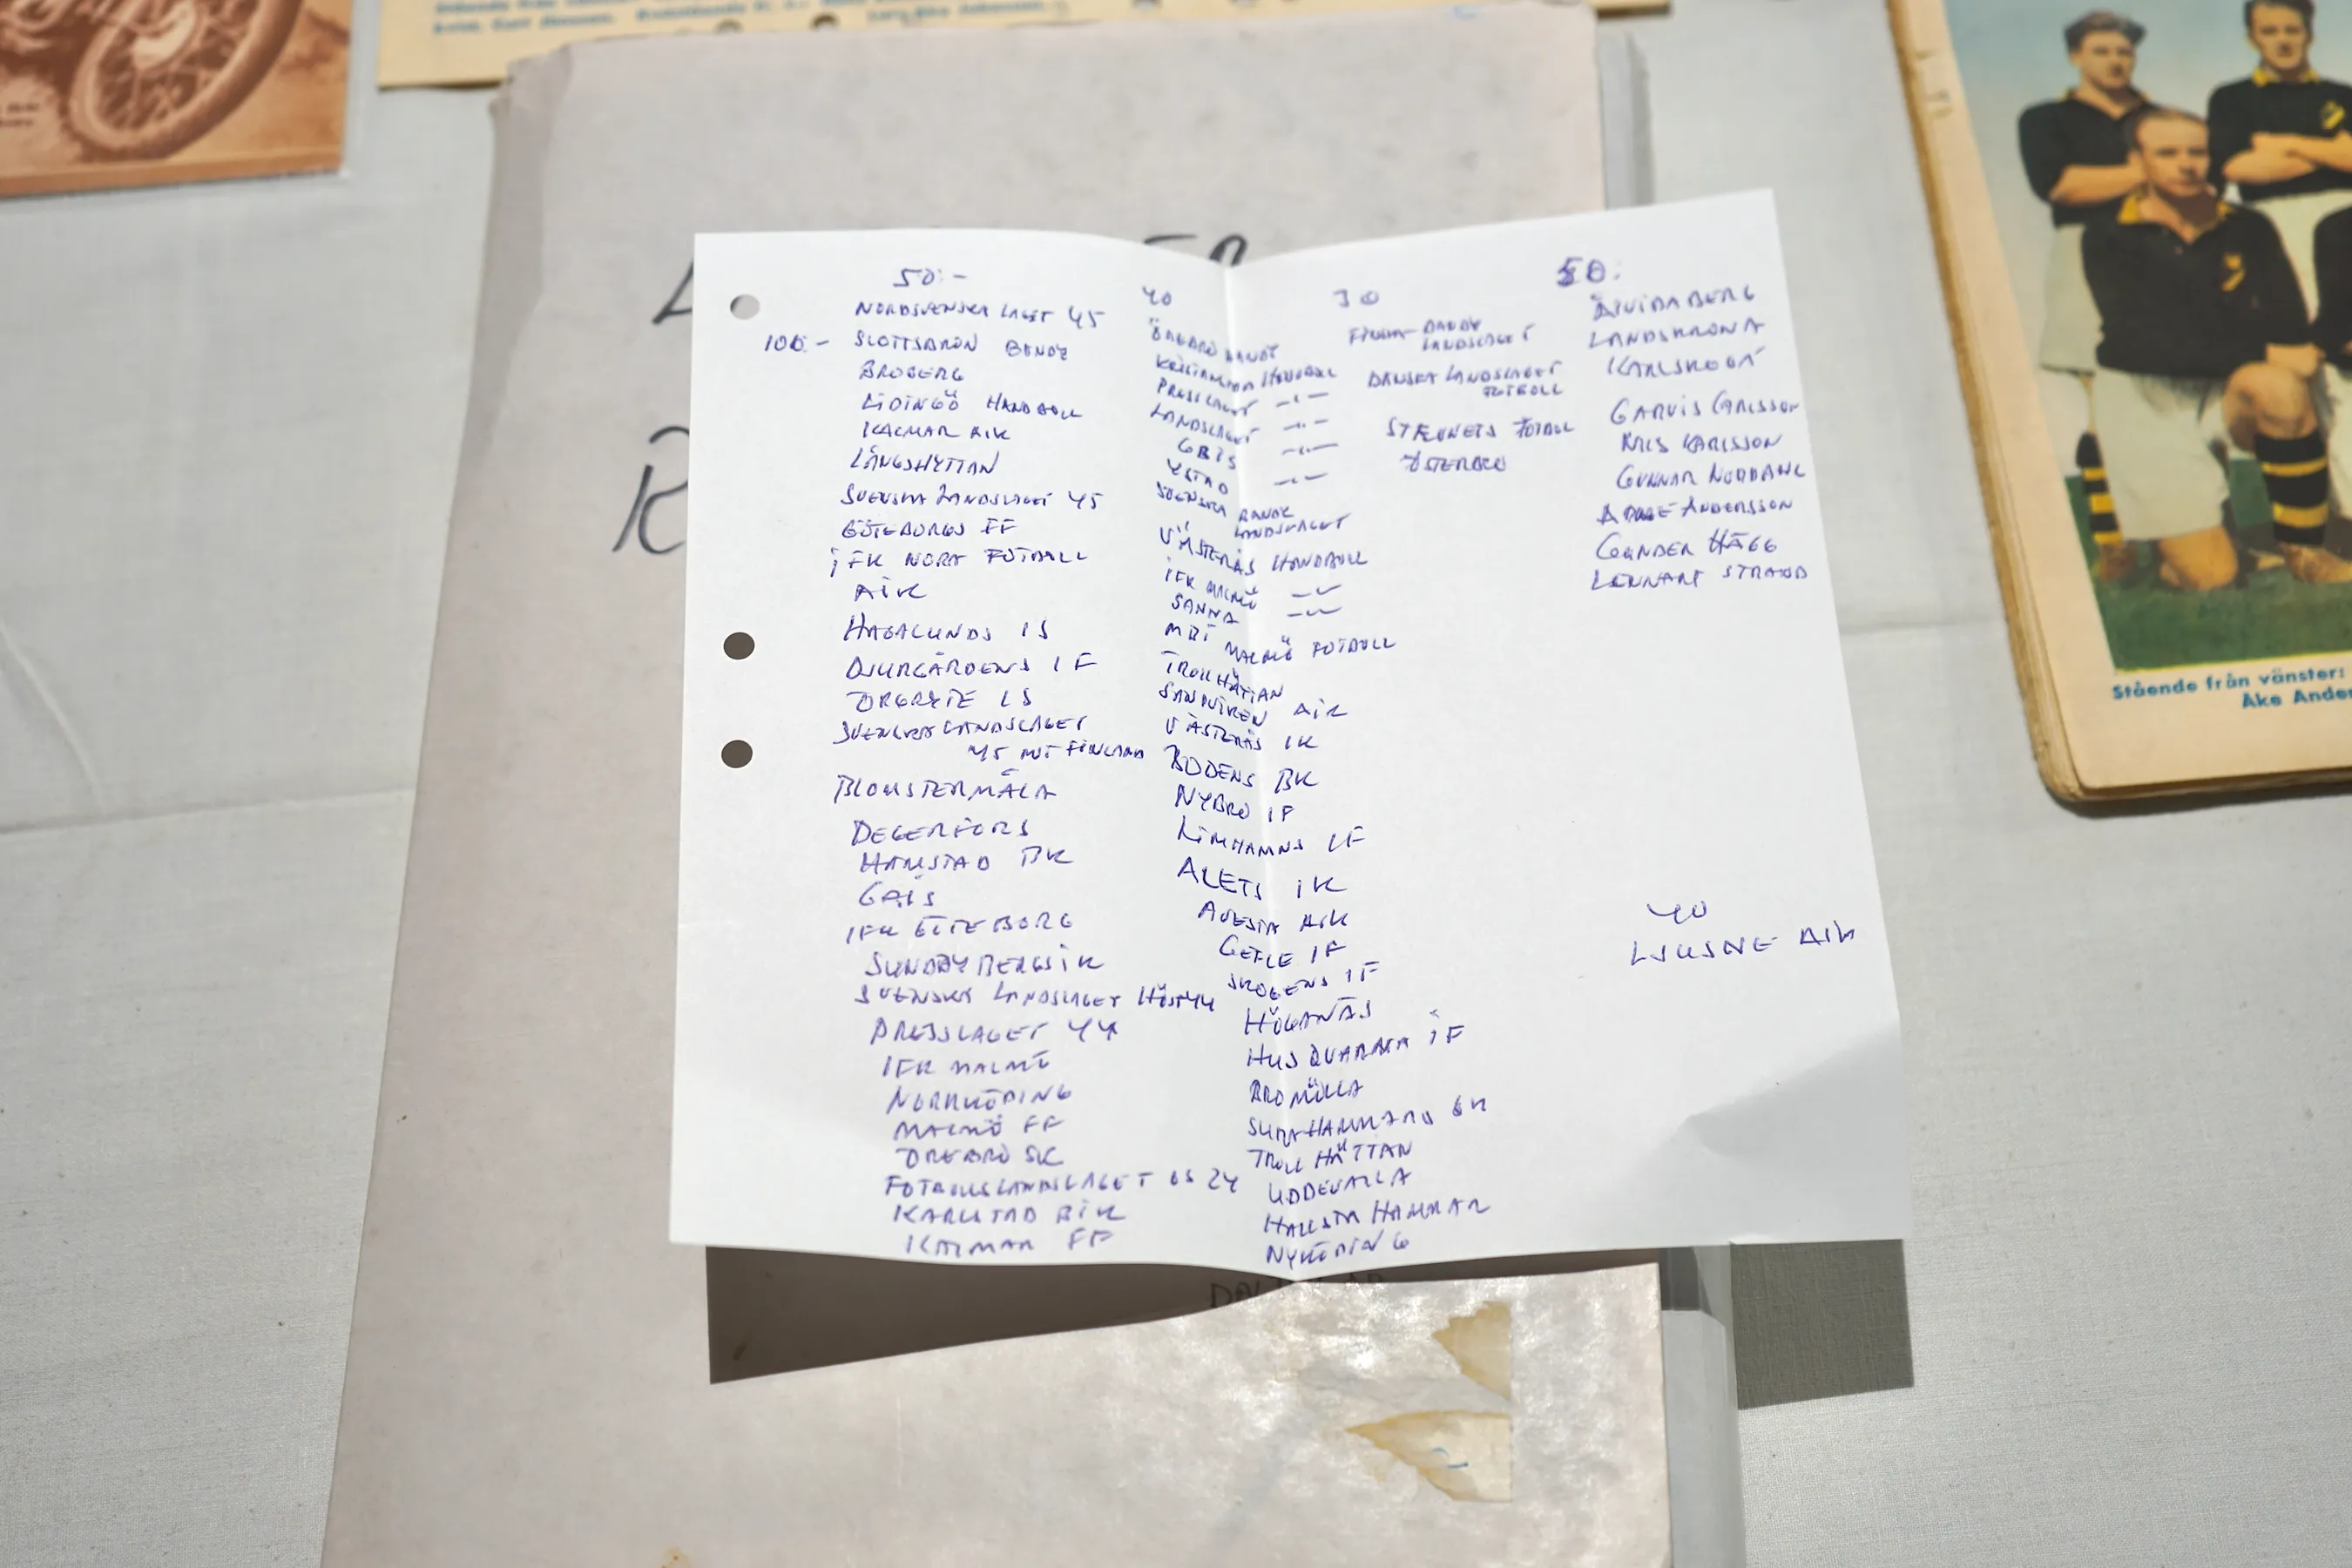 50:-
NORDSVENSKA LAGET 45
100:- SLOTTSBRON BANDY
BROBERG
LIDINGÖ HANDBOLL
KALMAR AIK
LÅNGSHYTTAN
SVENSKA LANDSLAGET 45
GÖTEBORGS FF
IFK NORR FOTBOLL
AIK
HAGALUNDS IS
DJURGÅRDENS IF
ÖRGRYTE IS
SVENSKA LANDSLAGET
45 MOT FINLAND
BLOMSTERMÅLA
DEGERFORS
HALMSTAD BK
GAIS
IFK GÖTEBORG
SUNDBYBERGS IK
SVENSKA LANDSLAGET HÖST 44
PRESSLAGET 44
IFK MALMÖ
NORRKÖPING
MALMÖ FF
ÖREBRO SK
FOTBOLLSLANDSLAGET OS 24
KARLSTAD BIK
KALMAR FF
40
ÖREBRO BANDY
KRISTIANSTAD HANDBOLL
PRESSLAGET -"-
LANDSLAGET -"-
GBIS -"-
YSTAD -"-
SVENSKA BANDY
LANDSLAGET
VÄSTERÅS HANDBOLL
IFK MALMÖ -"-
SANNA -"-
MBI MALMÖ FOTBOLL
TROLLHÄTTAN
SANDVIKEN AIK
VÄSTERÅS IK
BODENS BK
NYBRO IF
LIMHAMNS IF
ALETS IK
AVESTA AIK
GEFLE IF
SKOGENS IF
HÖGANÄS
HUSQVARNA IF
BROMÖLLA
SURAHAMMARS BK
TROLLHÄTTAN
UDDEVALLA
HALLSTAHAMMAR
NYKÖPING
30
FINSKA BANDY
LANDSLAGET
DANSKA LANDSLAGET
FOTBOLL
FOTBOLL
ÖSTERBRO
50:
ÅTVIDABERG
LANDSKRONA
KARLSKOGA
GARVIS CARLSSON
NILS KARLSSON
GUNNAR NORDAHL
ARNE ANDERSSON
GUNDER HÄGG
LENNART STRAND
40
LJUSNE AIK
Stående från vänster:
Åke Ander